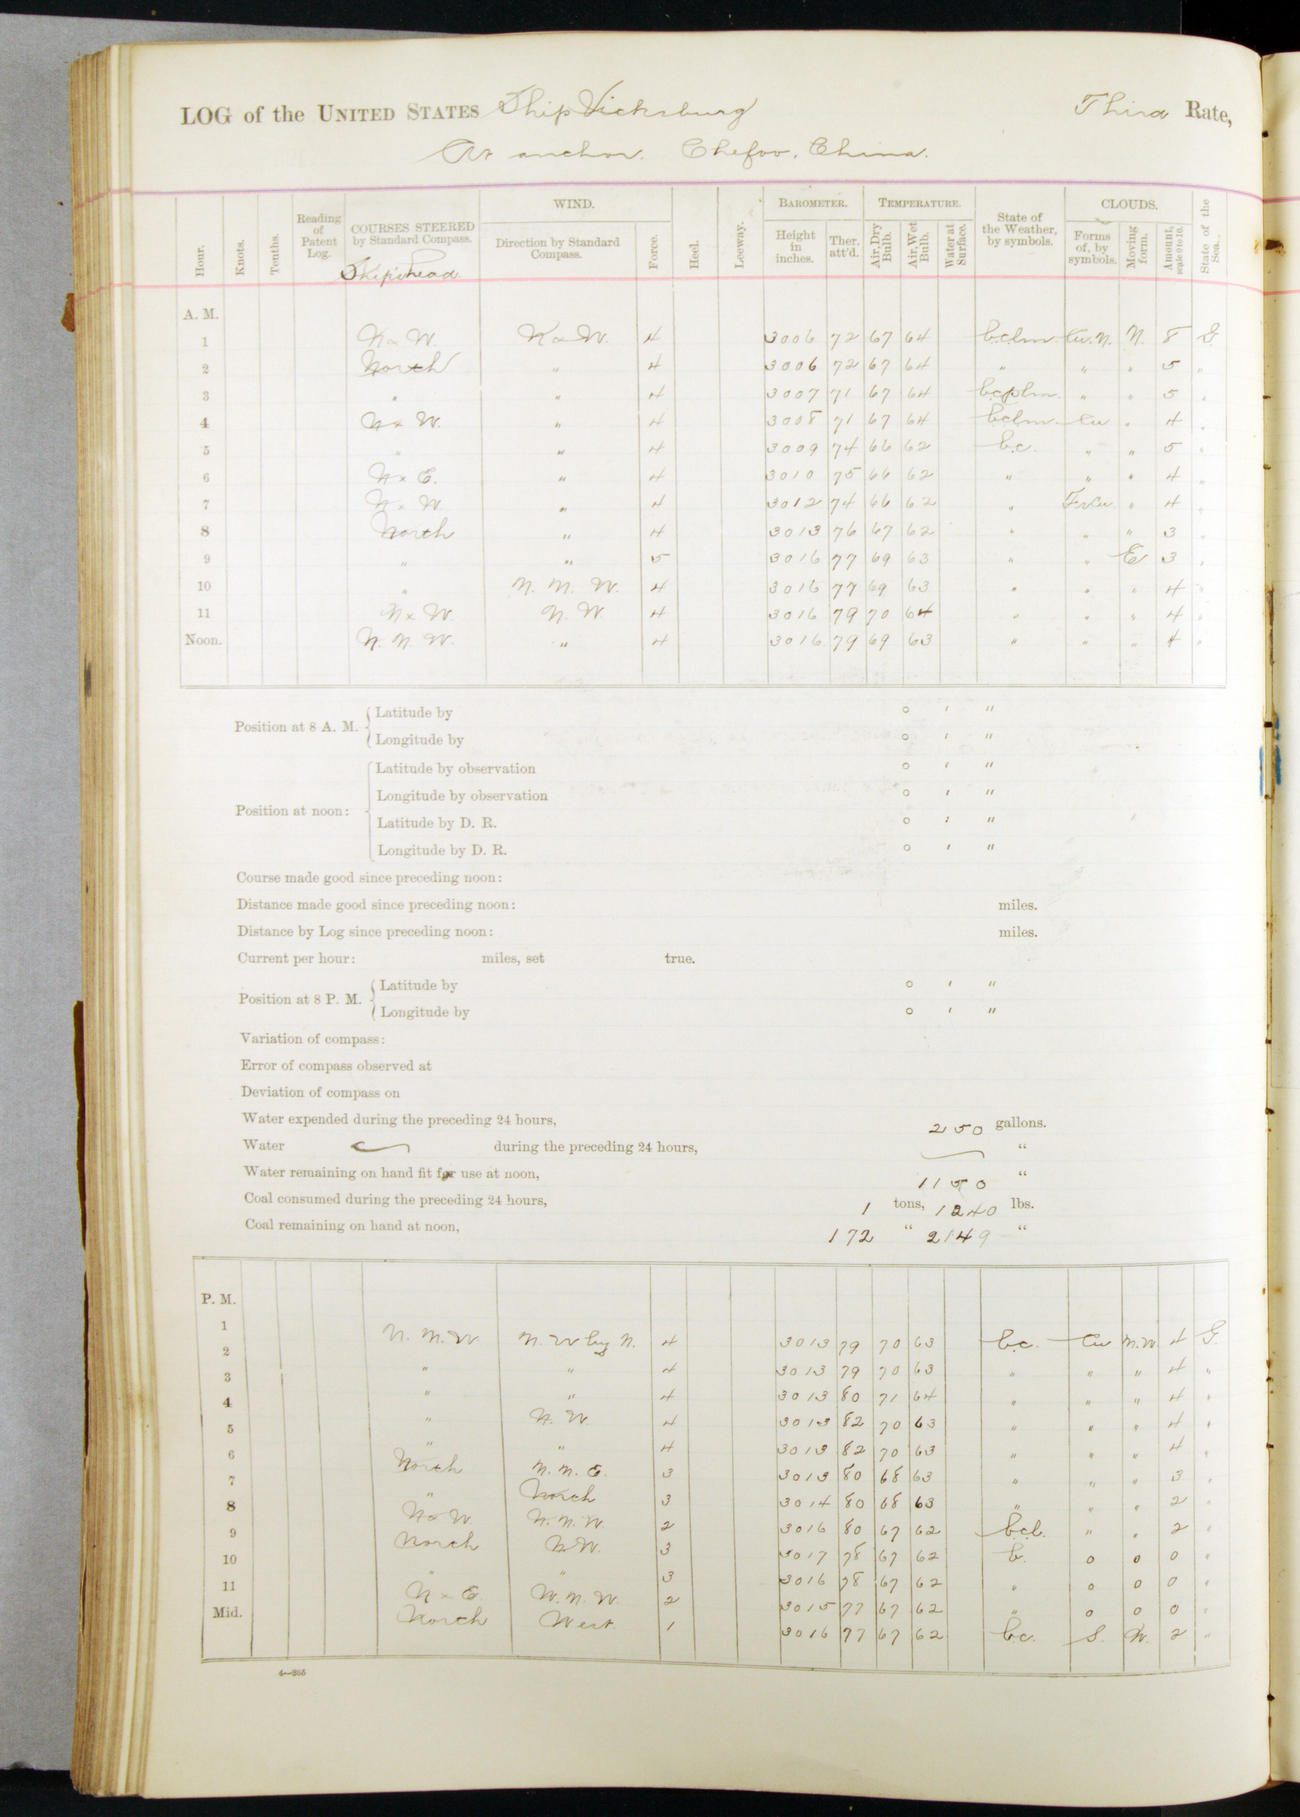 LOG of the UNITED STATES Ship Vicksburg Third Rate,
At anchor. Chefoo, China.
Hour. Knots. Tenths. Reading of Patent Log. COURSES STEERED by Standard Compass. WIND. Direction by Standard Compass. Force. Heel. Leeway. BAROMETER. Height in inches. Ther. att'd. TEMPERATURE. Air, Dry Bulb. Air, Wet Bulb. Water at Surface. State of the Weather, by symbols. CLOUDS. Forms of, by symbols. Moving form. Amount, scale 0 to 10. State of the Sea.
Ship's head
A. M.
1 N x W. N x W. 4 3006 72 67 64 bclm Cu.N. N. 8 S
2 North " 4 3006 72 67 64 " " " 5 "
3 " " 4 3007 71 67 64 bcplm. " " 5 "
4 N x W. " 4 3008 71 67 64 bclm Cu " 4 "
5 " " 4 3009 74 66 62 b.c. " " 5 "
6 N x E. " 4 3010 75 66 62 " " " 4 "
7 N x W. " 4 3012 74 66 62 " Fr.Cu. " 4 "
8 North " 4 3013 76 67 62 " " " 3 "
9 " " 5 3016 77 69 63 " " E 3 "
10 " N. N. W. 4 3016 77 69 63 " " " 4 "
11 N x W. N. W. 4 3016 79 70 64 " " " 4 "
Noon. N. N. W. " 4 3016 79 69 63 " " " 4 "
Position at 8 A. M. Latitude by ° ' "
Longitude by ° ' "
Position at noon: Latitude by observation ° ' "
Longitude by observation ° ' "
Latitude by D. R. ° ' "
Longitude by D. R. ° ' "
Course made good since preceding noon:
Distance made good since preceding noon: miles.
Distance by Log since preceding noon: miles.
Current per hour: miles, set true.
Position at 8 P. M. Latitude by ° ' "
Longitude by ° ' "
Variation of compass:
Error of compass observed at
Deviation of compass on
Water expended during the preceding 24 hours, 250 gallons.
Water during the preceding 24 hours, "
Water remaining on hand fit for use at noon, 1150 "
Coal consumed during the preceding 24 hours, 1 tons, 1240 lbs.
Coal remaining on hand at noon, 172 " 2149 "
P. M.
1 N. N. W N. W by N. 4 3013 79 70 63 b.c. Cu N.W. 4 S.
2 " " 4 3013 79 70 63 " " " 4 "
3 " " 4 3013 80 71 64 " " " 4 "
4 " N. W 4 3013 82 70 63 " " " 4 "
5 " " 4 3013 82 70 63 " " " 4 "
6 North N. N. E. 3 3013 80 68 63 " " " 3 "
7 " North 3 3014 80 68 63 " " " 2 "
8 N x W. N. N. W. 2 3016 80 67 62 b.c.l. " " 2 "
9 North N.W. 3 3017 78 67 62 b. 0 0 0 "
10 " " 3 3016 78 67 62 " 0 0 0 "
11 N x E. W. N. W. 2 3015 77 67 62 " 0 0 0 "
Mid. North West 1 3016 77 67 62 b.c. S. W. 2 "
4—255